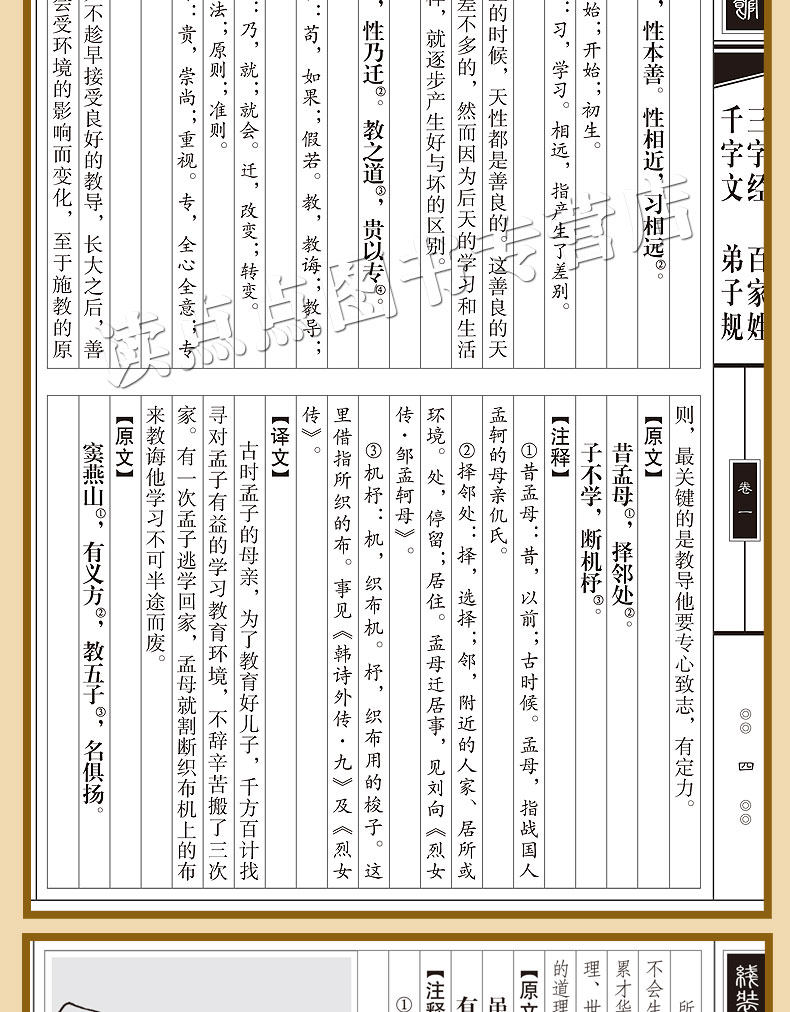 三字经 百家姓
千字文 弟子规
卷一
〇〇四〇〇
，性本善。性相近，习相远②。
始；开始；初生。
：习，学习。相远，指产生了差别。
的时候，天性都是善良的。这善良的天
差不多的，然而因为后天的学习和生活
，就逐步产生好与坏的区别。
，性乃迁②。教之道③，贵以专④。
：苟，如果；假若。教，教诲；教导；
：乃，就；就会。迁，改变；转变。
法；原则；准则。
：贵，崇尚；重视。专，全心全意；专
不趁早接受良好的教导，长大之后，善
会受环境的影响而变化，至于施教的原
读点点图书专营店
则，最关键的是教导他要专心致志，有定力。
【原文】
昔孟母①，择邻处②。
子不学，断机杼③。
【注释】
①昔孟母：昔，以前；古时候。孟母，指战国人
孟轲的母亲仉氏。
②择邻处：择，选择；邻，附近的人家、居所或
环境。处，停留；居住。孟母迁居事，见刘向《烈女
传·邹孟轲母》。
③机杼：机，织布机。杼，织布用的梭子。这
里借指所织的布。事见《韩诗外传·九》及《烈女
传》。
【译文】
古时孟子的母亲，为了教育好儿子，千方百计找
寻对孟子有益的学习教育环境，不辞辛苦搬了三次
家。有一次孟子逃学回家，孟母就割断织布机上的布
来教诲他学习不可半途而废。
【原文】
窦燕山①，有义方②，教五子③，名俱扬。
线装
所
不会生
累才华
理、世
的道理
【原文
有
【注释
①